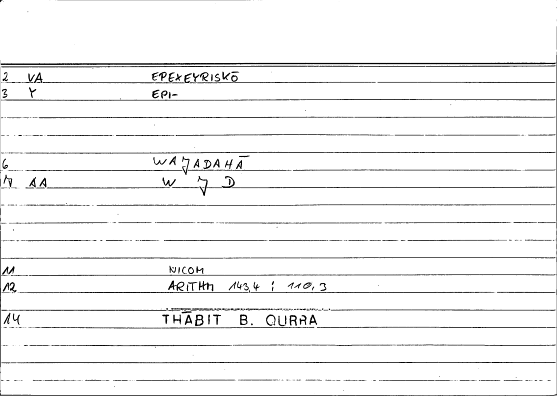 2 VA EPEXEYRISKŌ
3 Y EPI-
6 WAJADAHĀ
AA W J D
11 NICOM
12 ARITHM 143,4 ; 110,3
14 THĀBIT B. QURRA